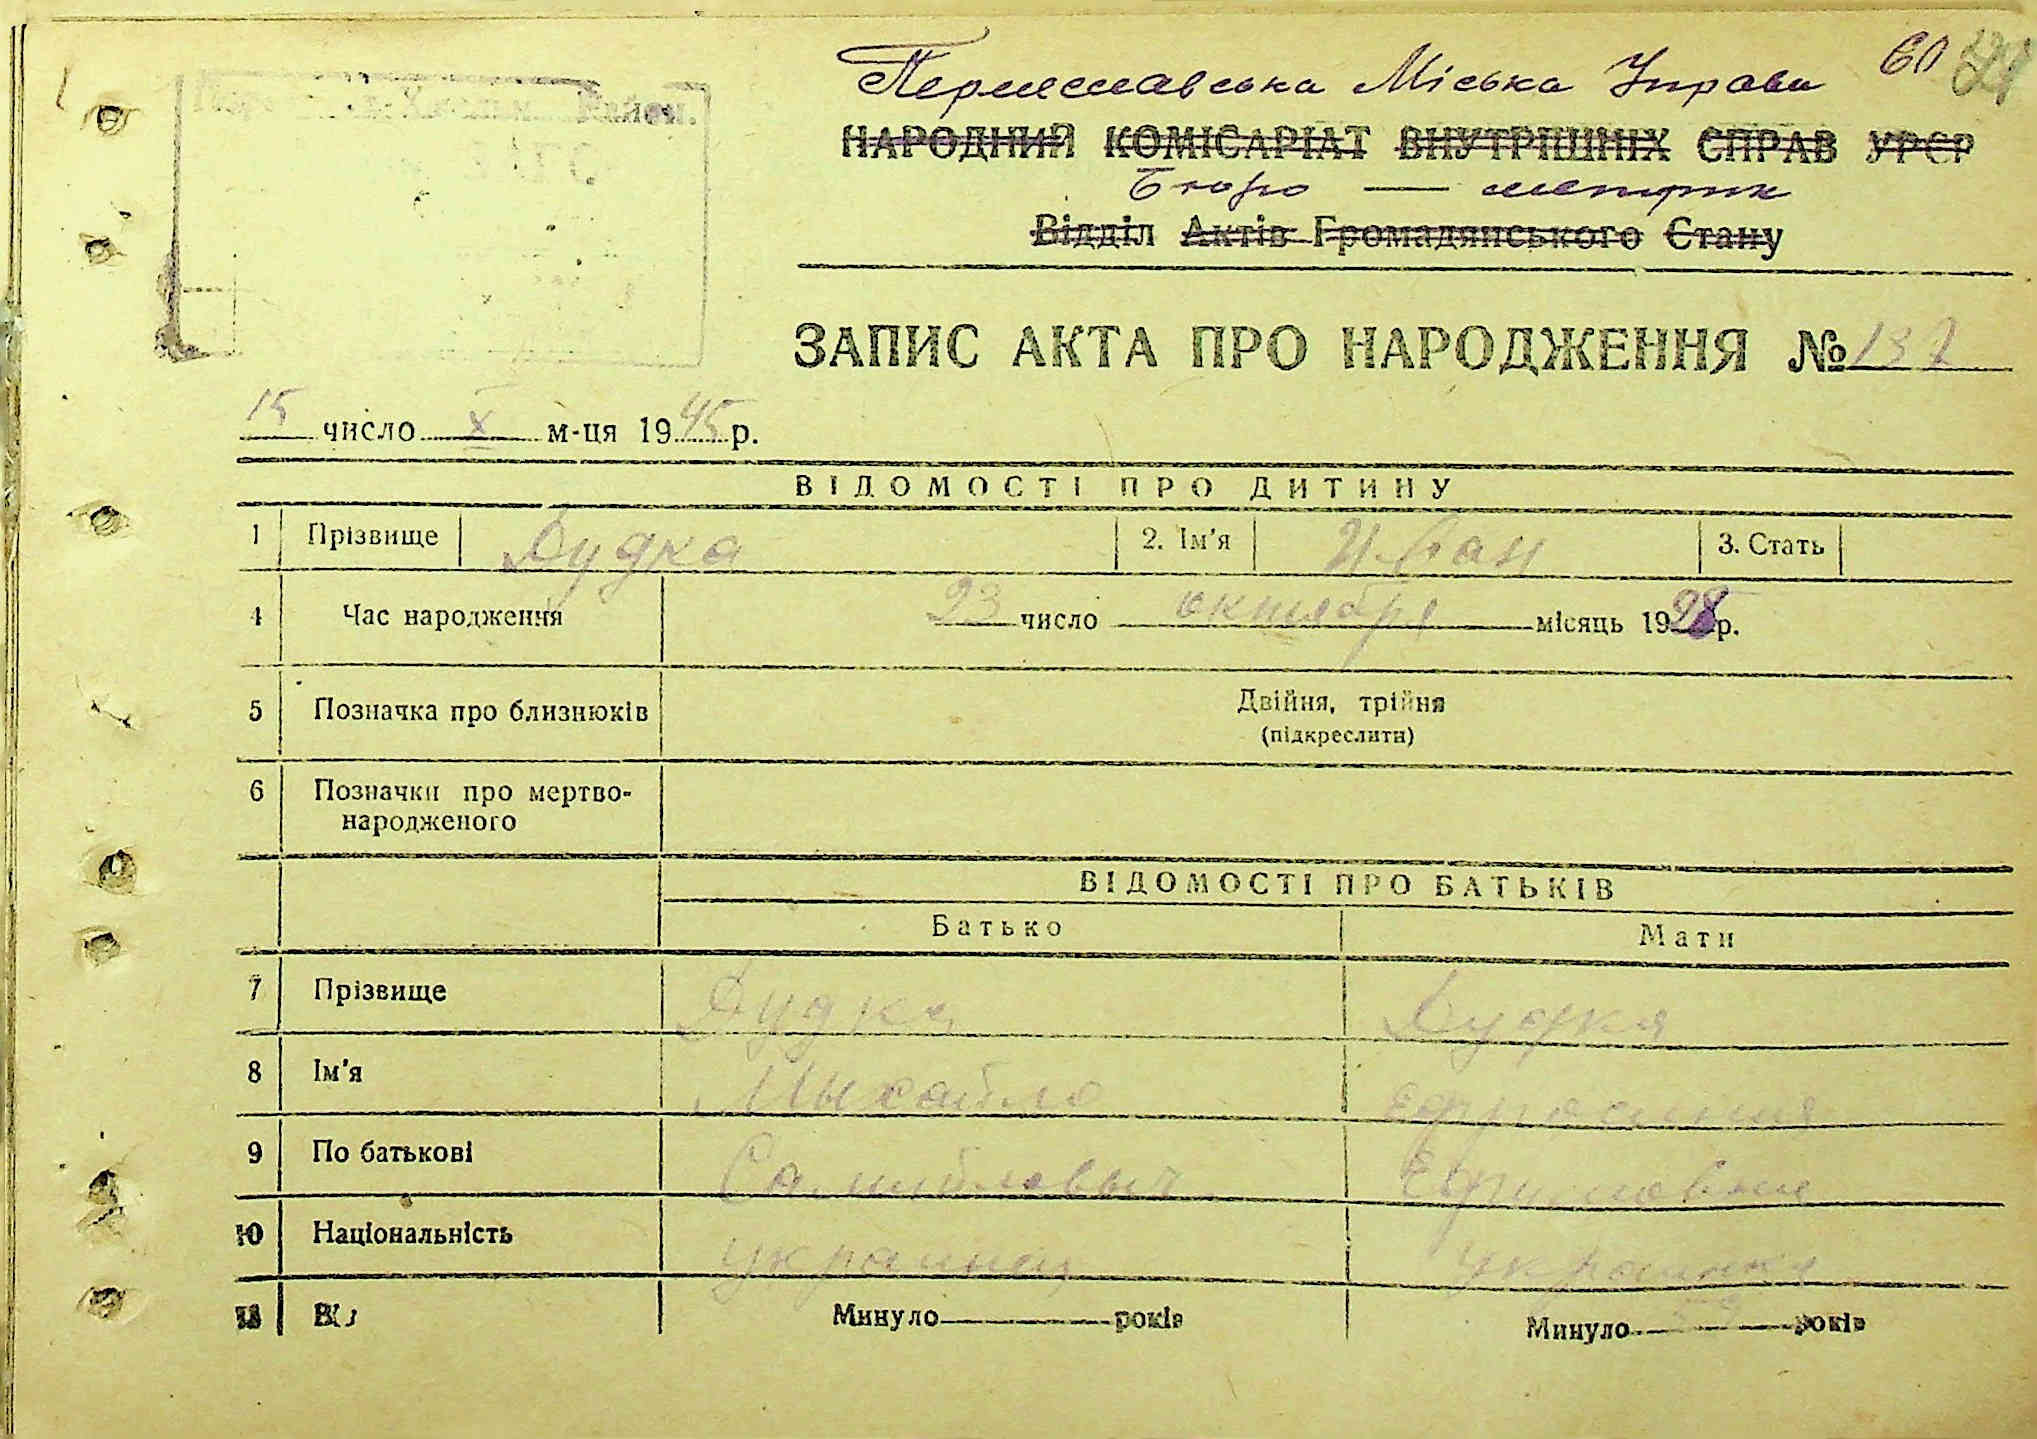 Переяславська Міська Управа 60
НАРОДНИЙ КОМІСАРІАТ ВНУТРІШНІХ СПРАВ УРСР
Бюро — метрик
Відділ Актів Громадянського Стану
ЗАПИС АКТА ПРО НАРОДЖЕННЯ № 137
15 число X м-ця 1945 р.
ВІДОМОСТІ ПРО ДИТИНУ
1 Прізвище Дудка 2. Ім'я Иван 3. Стать
4 Час народження 23 число октября місяць 1928 р.
5 Позначка про близнюків Двійня, трійня
(підкреслити)
6 Позначки про мертво-
народженого
ВІДОМОСТІ ПРО БАТЬКІВ
Батько Мати
7 Прізвище Дудка Дудка
8 Ім'я Мыхайло Ефросиния
9 По батькові Самийловыч Ефимовна
10 Національність украинец украинка
Минуло років Минуло років